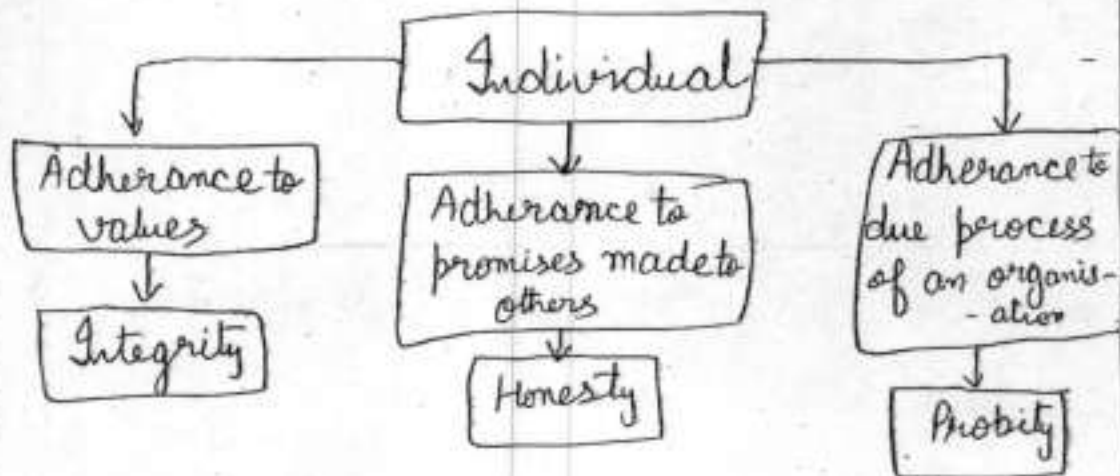 Individual
Adherance to
values
Integrity
Adherance to
promises made to
others
Honesty
Adherance to
due process
of an organis-
-ation
Probity